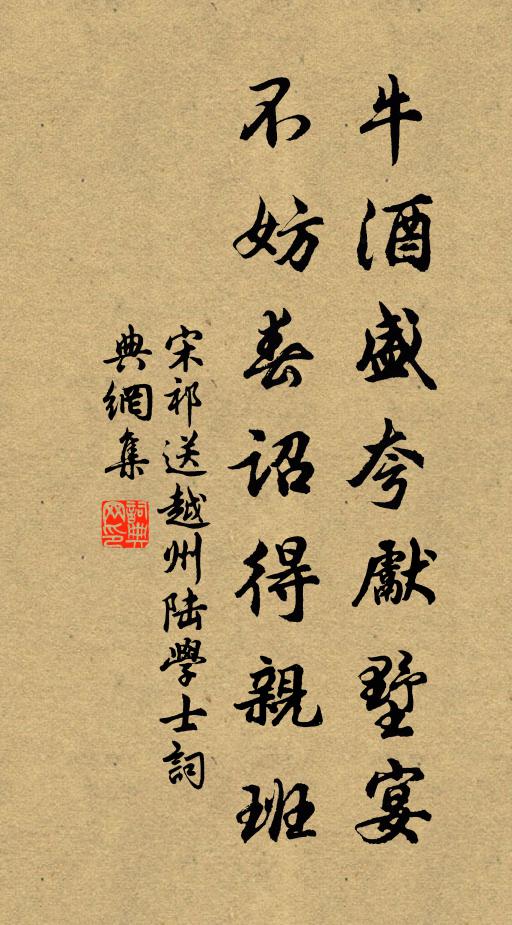 牛酒盛夸獻墅宴
不妨春詔得親班
宋祁送越州陆學士詞
典網集
詞典
网印